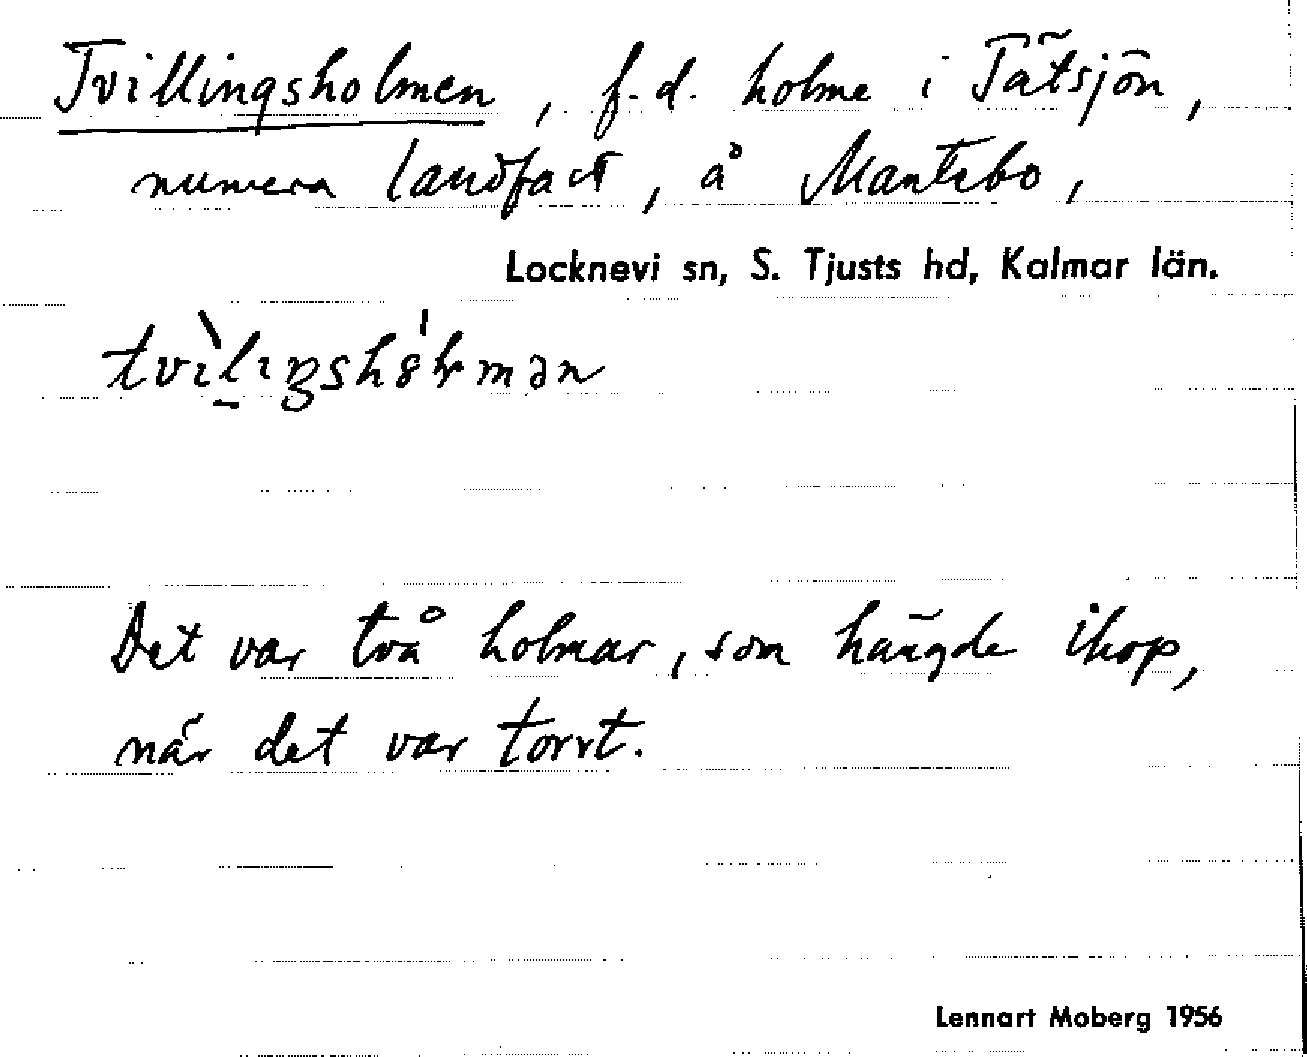 Tvillingsholmen, f.d. holme i Tätsjön,
numera landfast, å Mantebo,
Locknevi sn, S. Tjusts hd, Kalmar län.
Det var två holmar, som hängde ihop,
när det var torrt.
Lennart Moberg 1956